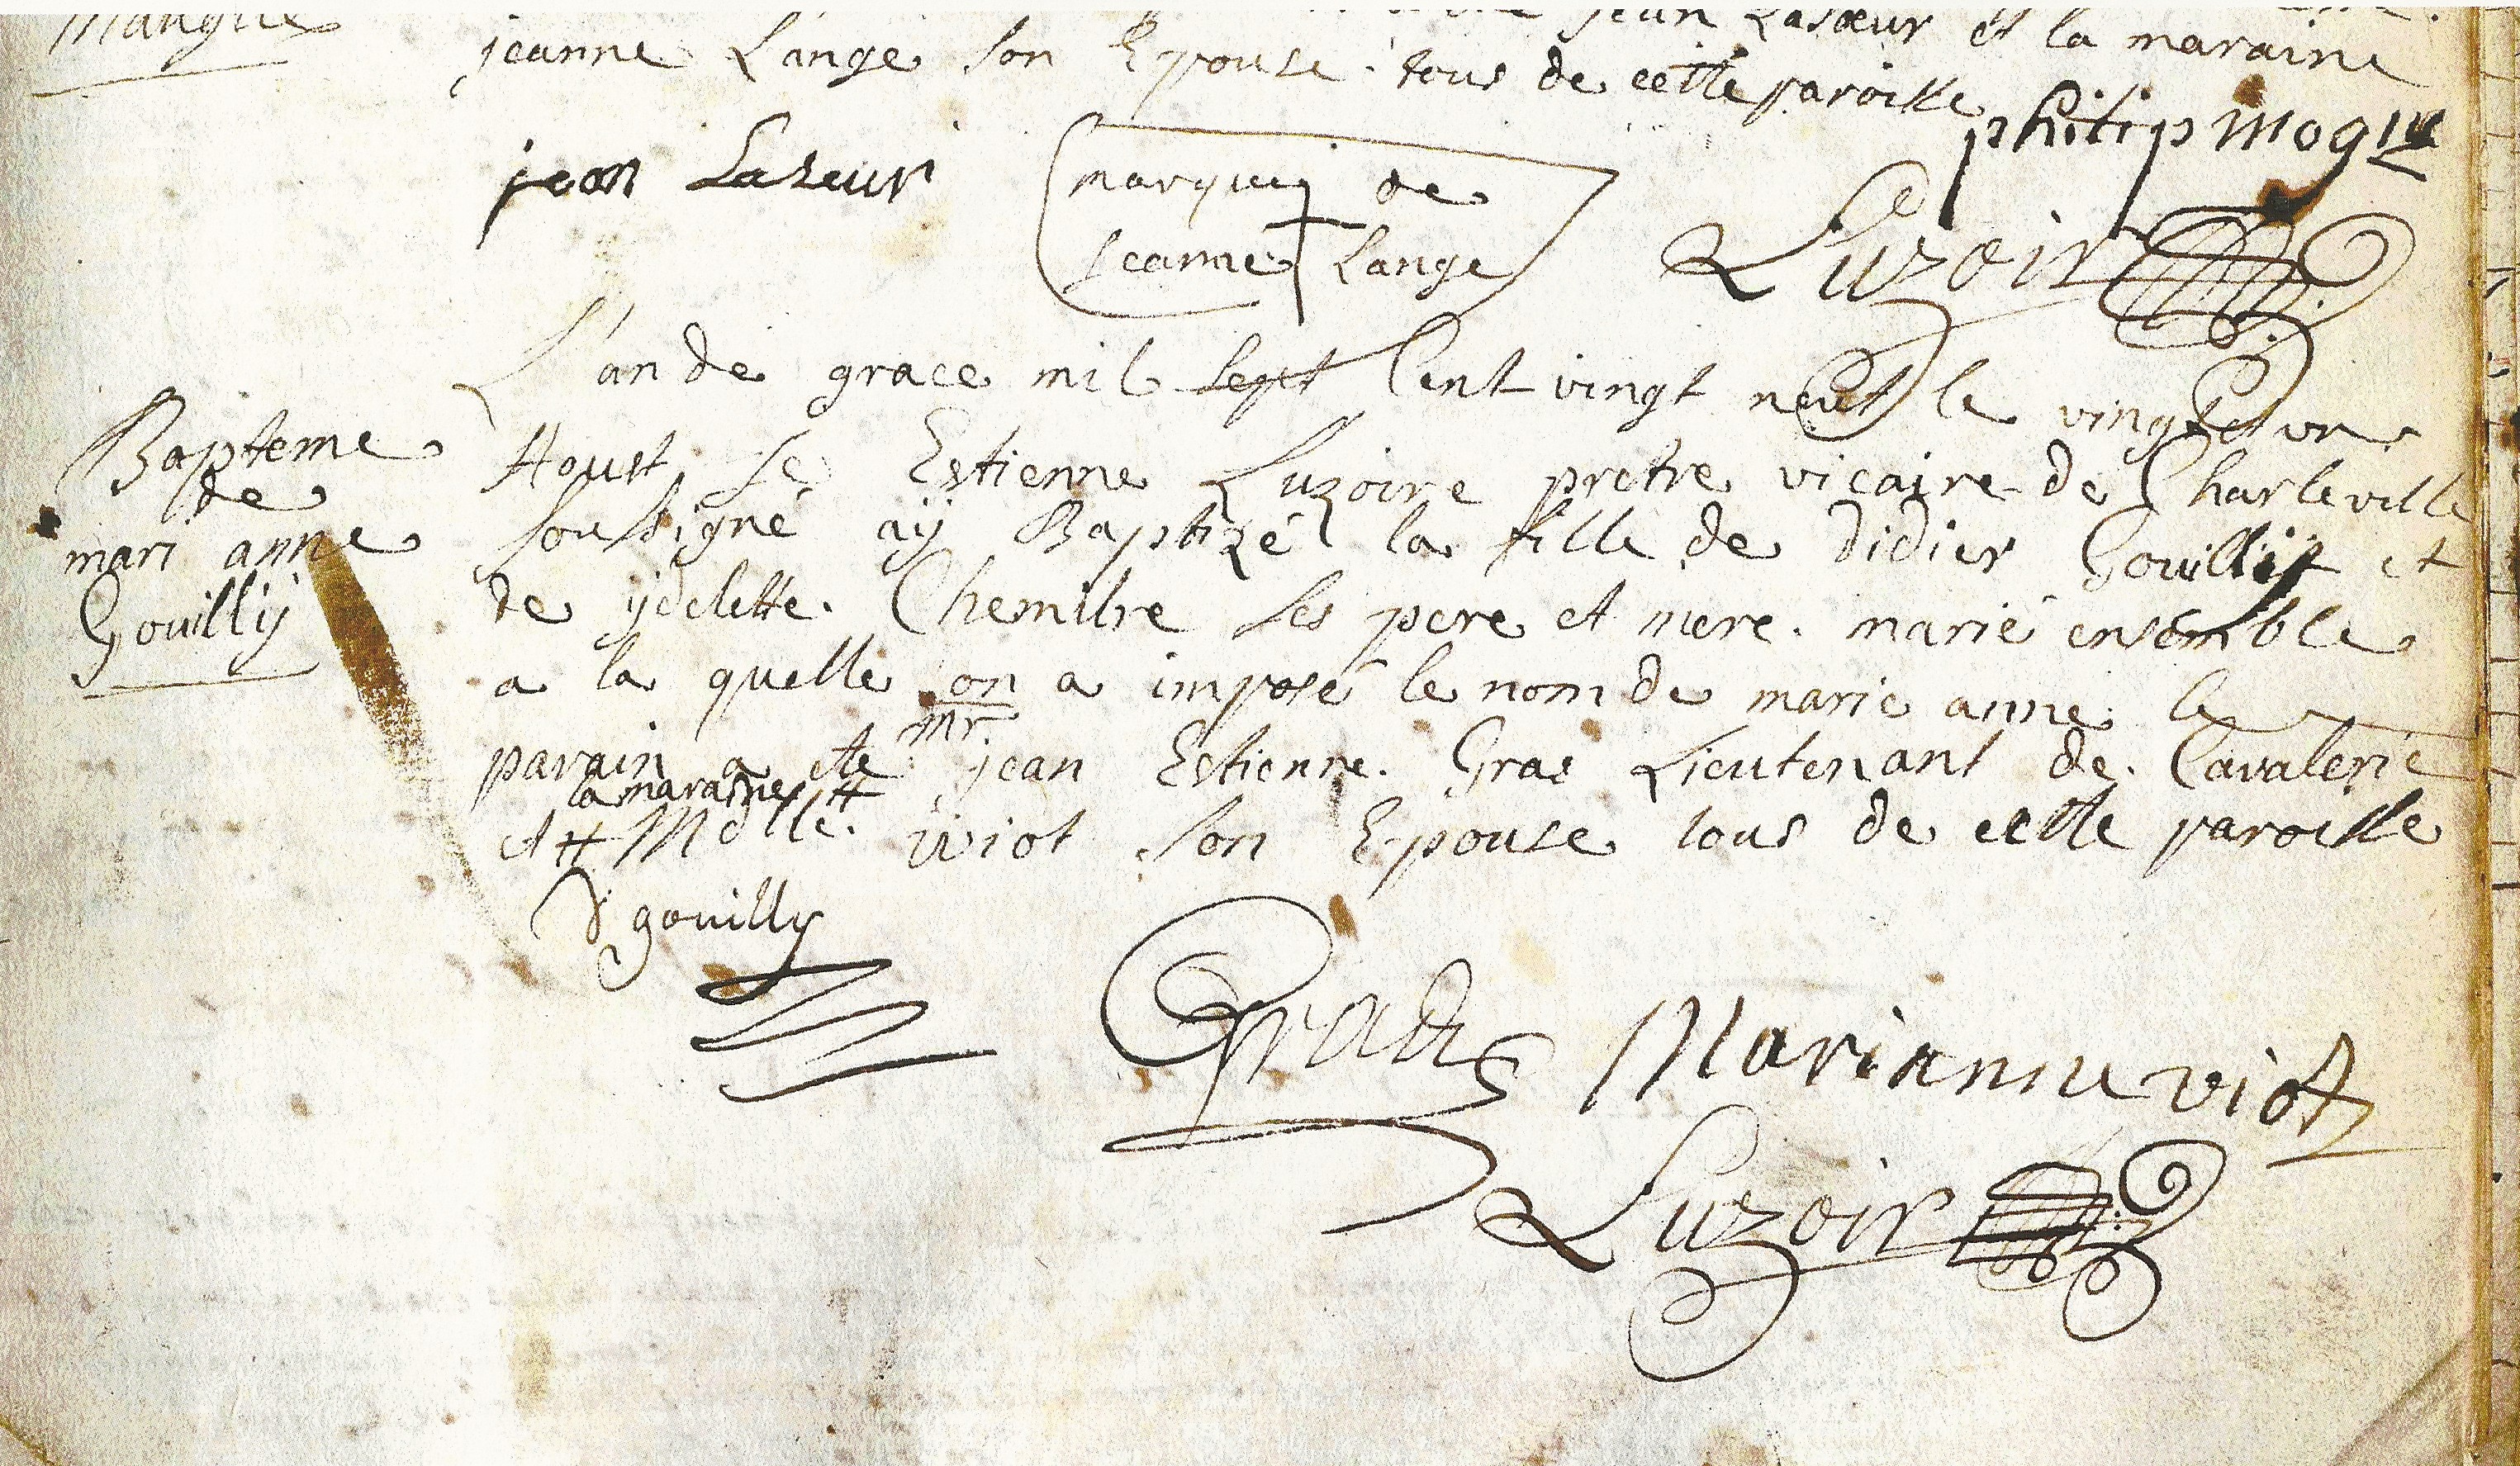 jean Lasœur et la maraine
jeanne Lange son Epouse. tous de cette paroisse
philip mogue
jean Laseur
marque de
Jeanne Lange
Luzoir
L'an de grace mil sept Cent vingt neuf le vingt et un
Bapteme
de
mari anne
Gouilly
Aoust Je Estienne Luzoire pretre vicaire de Charleville
soussigné aÿ Baptizé la fille de didier Gouilly et
de ÿdelette. Chemitre ses pere et mere. marié ensemble
a la quelle on a imposé le nom de marie anne. le
parain a ete mr jean Estienne. Gras Lieutenant de. Cavalerie
et # la maraine # Mdlle. wiot son Epouse tous de cette paroisse
D gouilly
Gras
Marianne viot
Luzoir